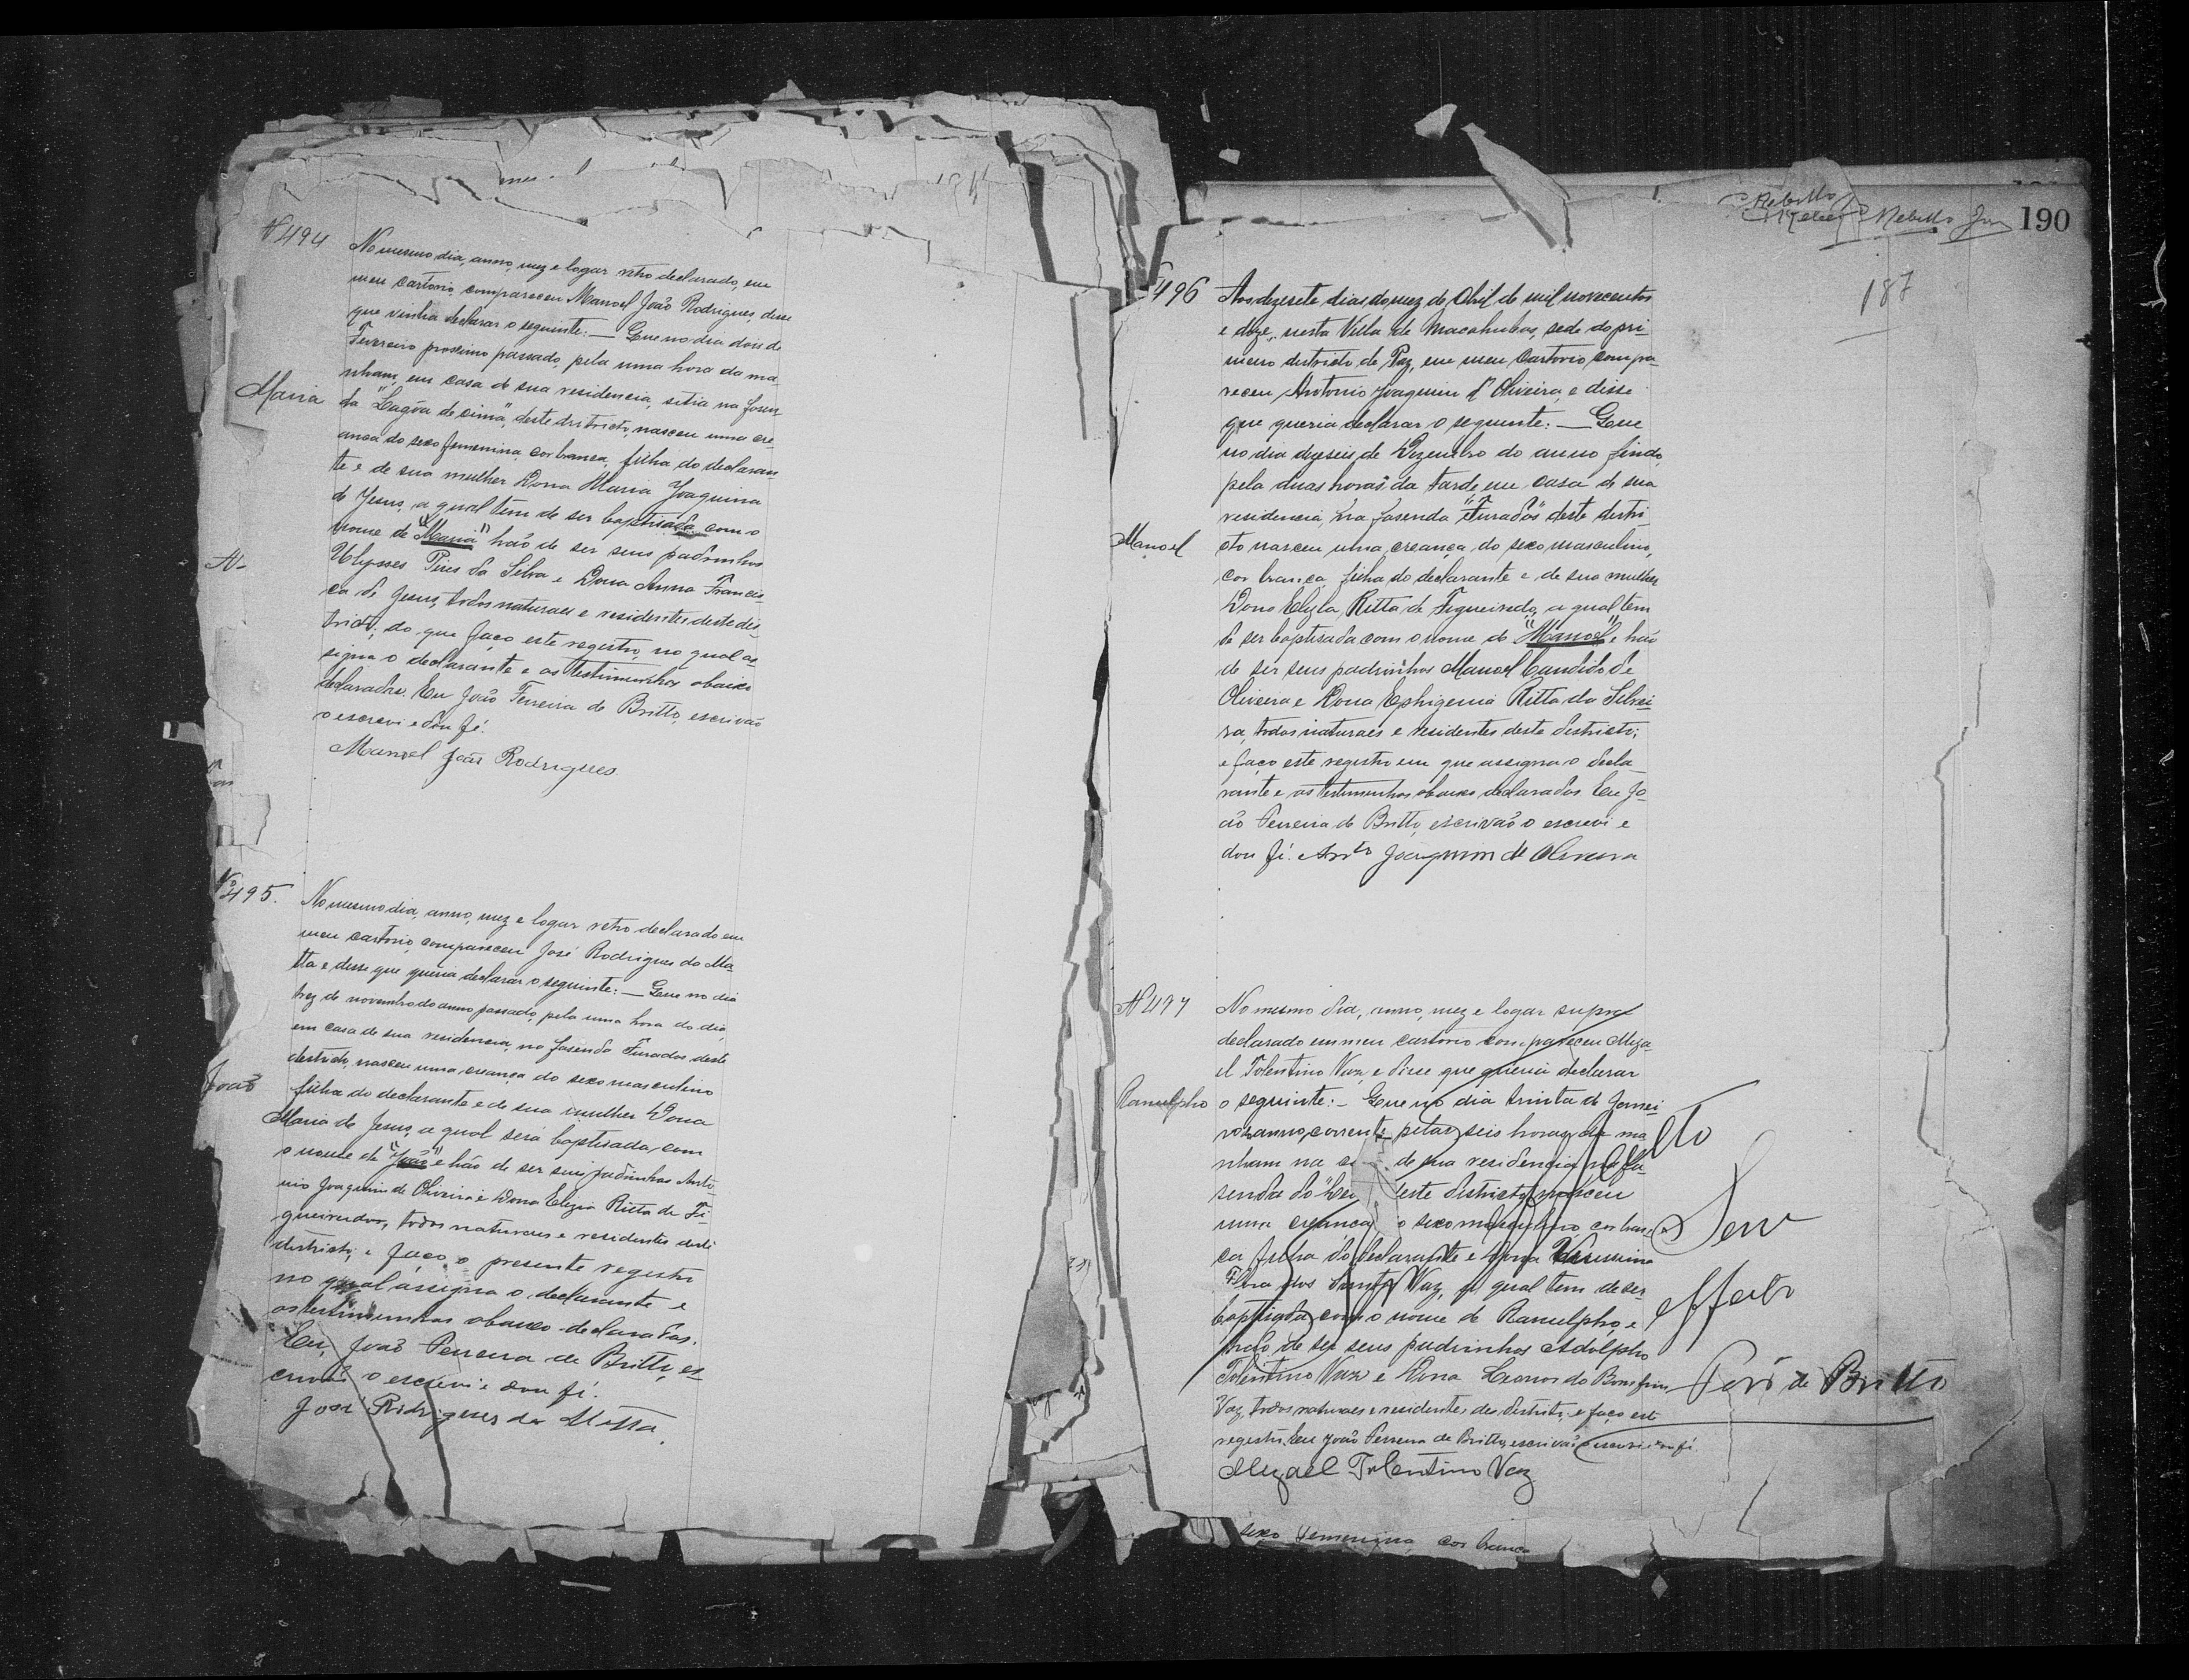 Nº 494
No mesmo dia, anno, mez e logar retro declarado, em
meu cartorio, compareceu Manoel João Rodrigues, disse
que vinha declarar o seguinte: — Que no dia dois de
Fevereiro proximo passado, pela uma hora da ma
nham, em casa de sua residencia, sitia na fasen
Maria
da "Lagôa de cima" deste districto, nasceu uma cre
ança do sexo femenina, cor branca, filha do declaran
te e de sua mulher Dona Maria Joaquina
de Jesus, a qual tem de ser baptisada com o
nome de "Maria" hão de ser seus padrinhos
Ulysses Pires da Silva e Dona Anna Francis
ca de Jesus, todos naturaes e residentes deste dis
tricto; do que faço este registro, no qual as
signa o declarante e as testimunhas abaixo
declaradas. Eu João Ferreira de Britto, escrivão
o escrevi e dou fé.
Manoel João Rodrigues
Nº 495.
No mesmo dia, anno, mez e logar retro declarado em
meu cartorio, compareceu José Rodrigues da Ma
tta e disse que queria declarar o seguinte: — Que no dia
trez de novembro do anno passado, pela uma hora do dia,
em casa de sua residencia, na fasenda Furados deste
districto, nasceu uma creança do sexo masculino
João
filha do declarante e de sua mulher Dona
Maria de Jesus, a qual será baptisada, com
o nome de "João" e hão de ser seus padrinhos Anto
nio Joaquim de Oliveira e Dona Elizia Ritta de Fi
gueiredos, todos naturaes e residentes deste
districto; e faço o presente registro
no qual assigna o declarante e
as testimunhas abaixo declaradas.
Eu, João Ferreira de Britto, es
crivão o escrevi e dou fé.
José Rodrigues da Matta.
Rebello Jor
190
187
496
Aos dezesete dias do mez de Abril de mil novecentos
e doze, nesta Villa de Macahubas, sede do pri-
meiro districto de Paz, em meu Cartorio, compa-
receu Antonio Joaquim d'Oliveira, e disse
que queria declarar o seguinte: — Que
no dia dezeseis de Dezembro do anno findo,
pela duas horas da tarde em casa de sua
residencia, na fasenda "Furados" deste distri-
Manoel
cto nasceu uma creança, do sexo masculino,
cor branca, filha do declarante e de sua mulher
Dona Ritta de Figueiredo, a qual tem
de ser baptisada com o nome de "Manoel" e hão
de ser seus padrinhos Manoel Candido de
Oliveira e Dona Ephigenia Ritta da Silvei-
ra, todos naturaes e residentes deste districto;
e faço este registro em que assigna o decla-
rante e as testimunhas abaixo declaradas. Eu Jo-
ão Ferreira de Britto, escrivão o escrevi e
dou fé. Antº Joaquim de Oliveira
Nº 497
No mesmo dia, anno, mez e logar supra
declarado em meu cartorio compareceu Miza-
el Tolentino Vaz, e disse que queria declarar
Ranulpho
o seguinte: — Que no dia trinta de Janei-
ro anno corrente pelas seis horas da ma
nham na de sua residencia na fa-
senda do este districto nasceu
uma creança o sexo masculino, cor bran
ca filha do declarante e Dona
dos Santos Vaz, a qual tem de ser
baptisada com o nome de Ranulpho, e
hão de ser seus padrinhos Adolpho
Tolentino Vaz e Dona do Bomfim
Vaz, todos naturaes e residentes deste districto, e faço este
registro. Eu João Ferreira de Britto, escrivão o escrevi e dou fé.
Mizael Tolentino Vaz
Sem
effeito
de Britto
sexo femenina, cor branca